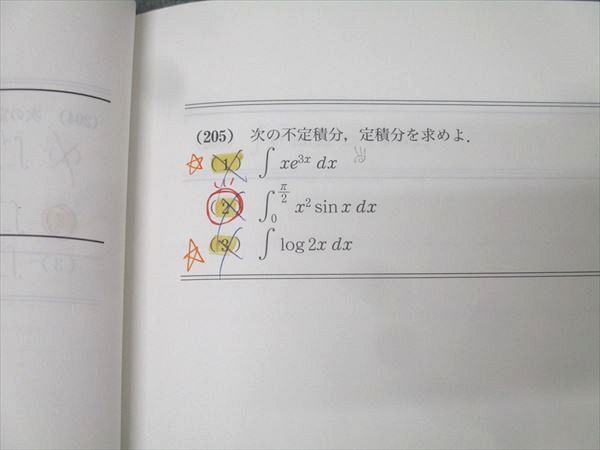 (205) 次の不定積分，定積分を求めよ．
(1) ∫ xe^{3x} dx
(2) ∫_0^{π/2} x^2 sin x dx
(3) ∫ log 2x dx